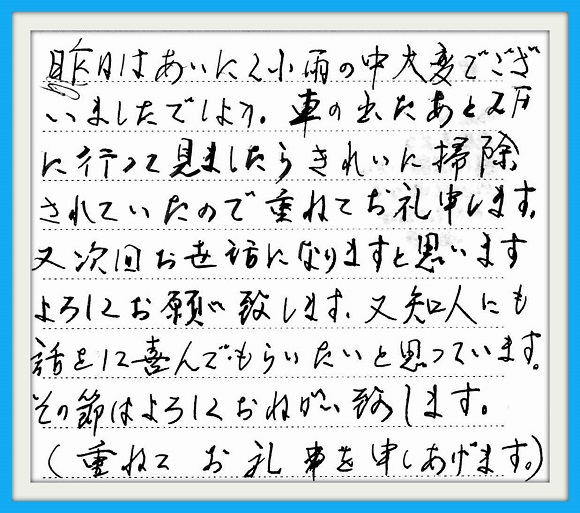 昨日はあいにく小雨の中大変でござ
いましたでしょう。車の出たあと
に行って見ましたらきれいに掃除
されていたので重ねてお礼申します。
又次回お世話になりますと思います
よろしくお願い致します、又知人にも
話をして喜んでもらいたいと思っています。
その節はよろしくおねがい致します。
(重ねて お礼 を申しあげます。)